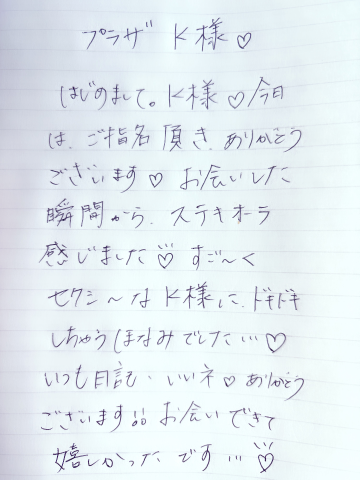 プラザ K様♡
はじめまして。K様♡今日
は、ご指名頂き、ありがとう
ございます♡ お会いした
瞬間から、ステキオーラ
感じました♡ すご〜く
セクシ〜なK様に、ドキドキ
しちゃうほなみでした…♡
いつも日記・いいネ♡ありがとう
ございます!! お会いできて
嬉しかったです…♡